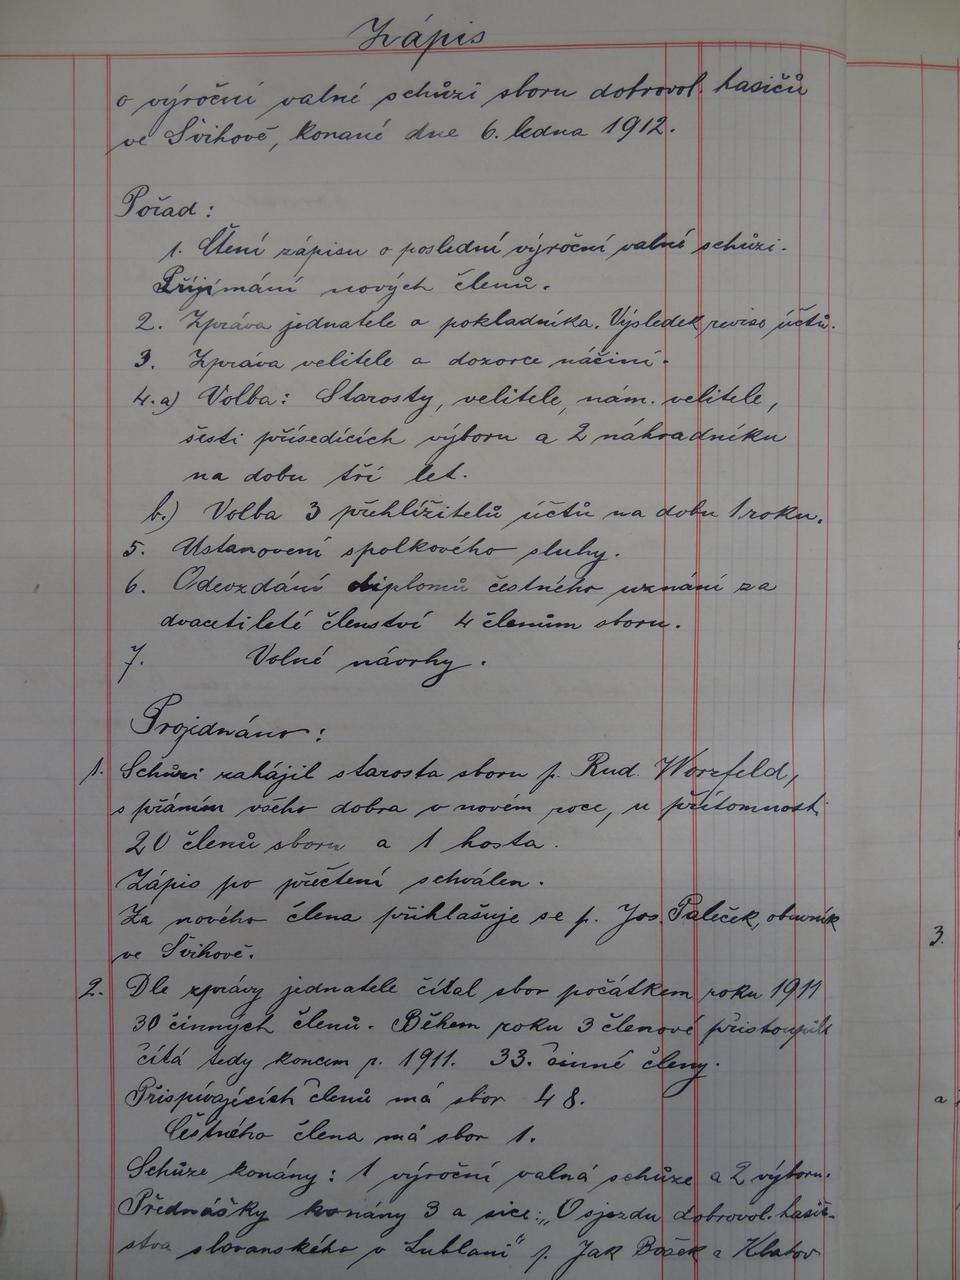 Zápis
o výroční valné schůzi sboru dobrovol. hasičů
ve Švihově, konané dne 6. ledna 1912.
Pořad:
1. Čtení zápisu o poslední výroční valné schůzi.
Přijímání nových členů.
2. Zpráva jednatele a pokladníka. Výsledek revise účtů.
3. Zpráva velitele a dozorce náčiní.
4. a) Volba: Starosty, velitele, nám. velitele,
šesti přísedících výboru a 2 náhradníku
na dobu tří let.
b.) Volba 3 přehlížitelů účtů na dobu 1 roku.
5. Ustanovení spolkového sluhy.
6. Odevzdání diplomů čestného uznání za
dvacetileté členství 4 členům sboru.
7. Volné návrhy.
Projednáno:
1. Schůzi zahájil starosta sboru p. Rud. Worzfeld,
s přáním všeho dobra v novém roce, u přítomnosti
20 členů sboru a 1 hosta.
Zápis po přečtení schválen.
Za nového člena přihlašuje se p. Jos. Paleček, obuvník
ve Švihově.
2. Dle zprávy jednatele čítal sbor počátkem roku 1911
30 činných členů. Během roku 3 členové přistoupili
čítá tedy koncem r. 1911. 33. činné členy.
Přispívajících členů má sbor 48.
Čestného člena má sbor 1.
Schůze konány: 1 výroční valná schůze a 2 výboru.
Přednášky konány 3 a sice: „O sjezdu dobrovol. hasič-
stva slovanského v Lublani" p. Jak
Klatov
3.
a